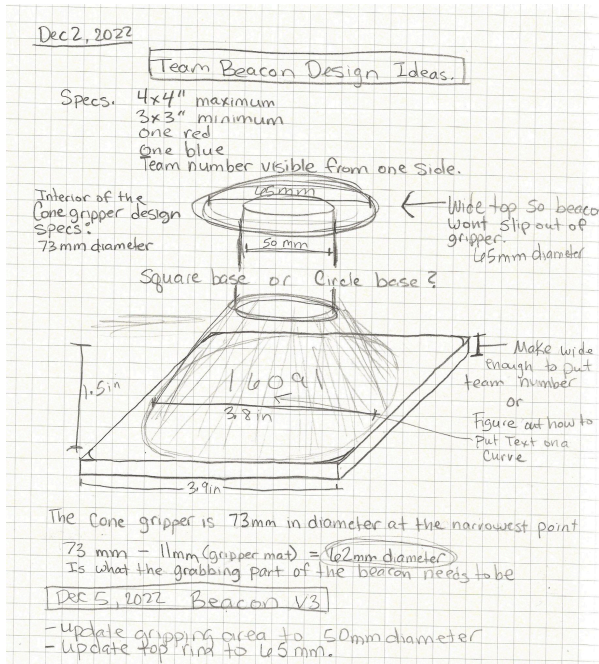 Dec 2, 2022
Team Beacon Design Ideas.
Specs. 4x4" maximum
3x3" minimum
one red
one blue
Team number visible from one side.
Interior of the
Cone gripper design
specs:
73 mm diameter
65mm
50 mm
Wide top so beaco
wont slip out of
gripper.
65mm diameter
Square base or Circle base?
1.5in
16091
3.8in
3.9in
Make wide
enough to put
team number
or
Figure out how to
Put Text on a
Curve
The Cone gripper is 73mm in diameter at the narrowest point
73 mm - 11mm (gripper mat) = 62mm diameter
Is what the grabbing part of the beacon needs to be
Dec 5, 2022 Beacon V3
- update gripping area to 50mm diameter
- update top ring to 65 mm.